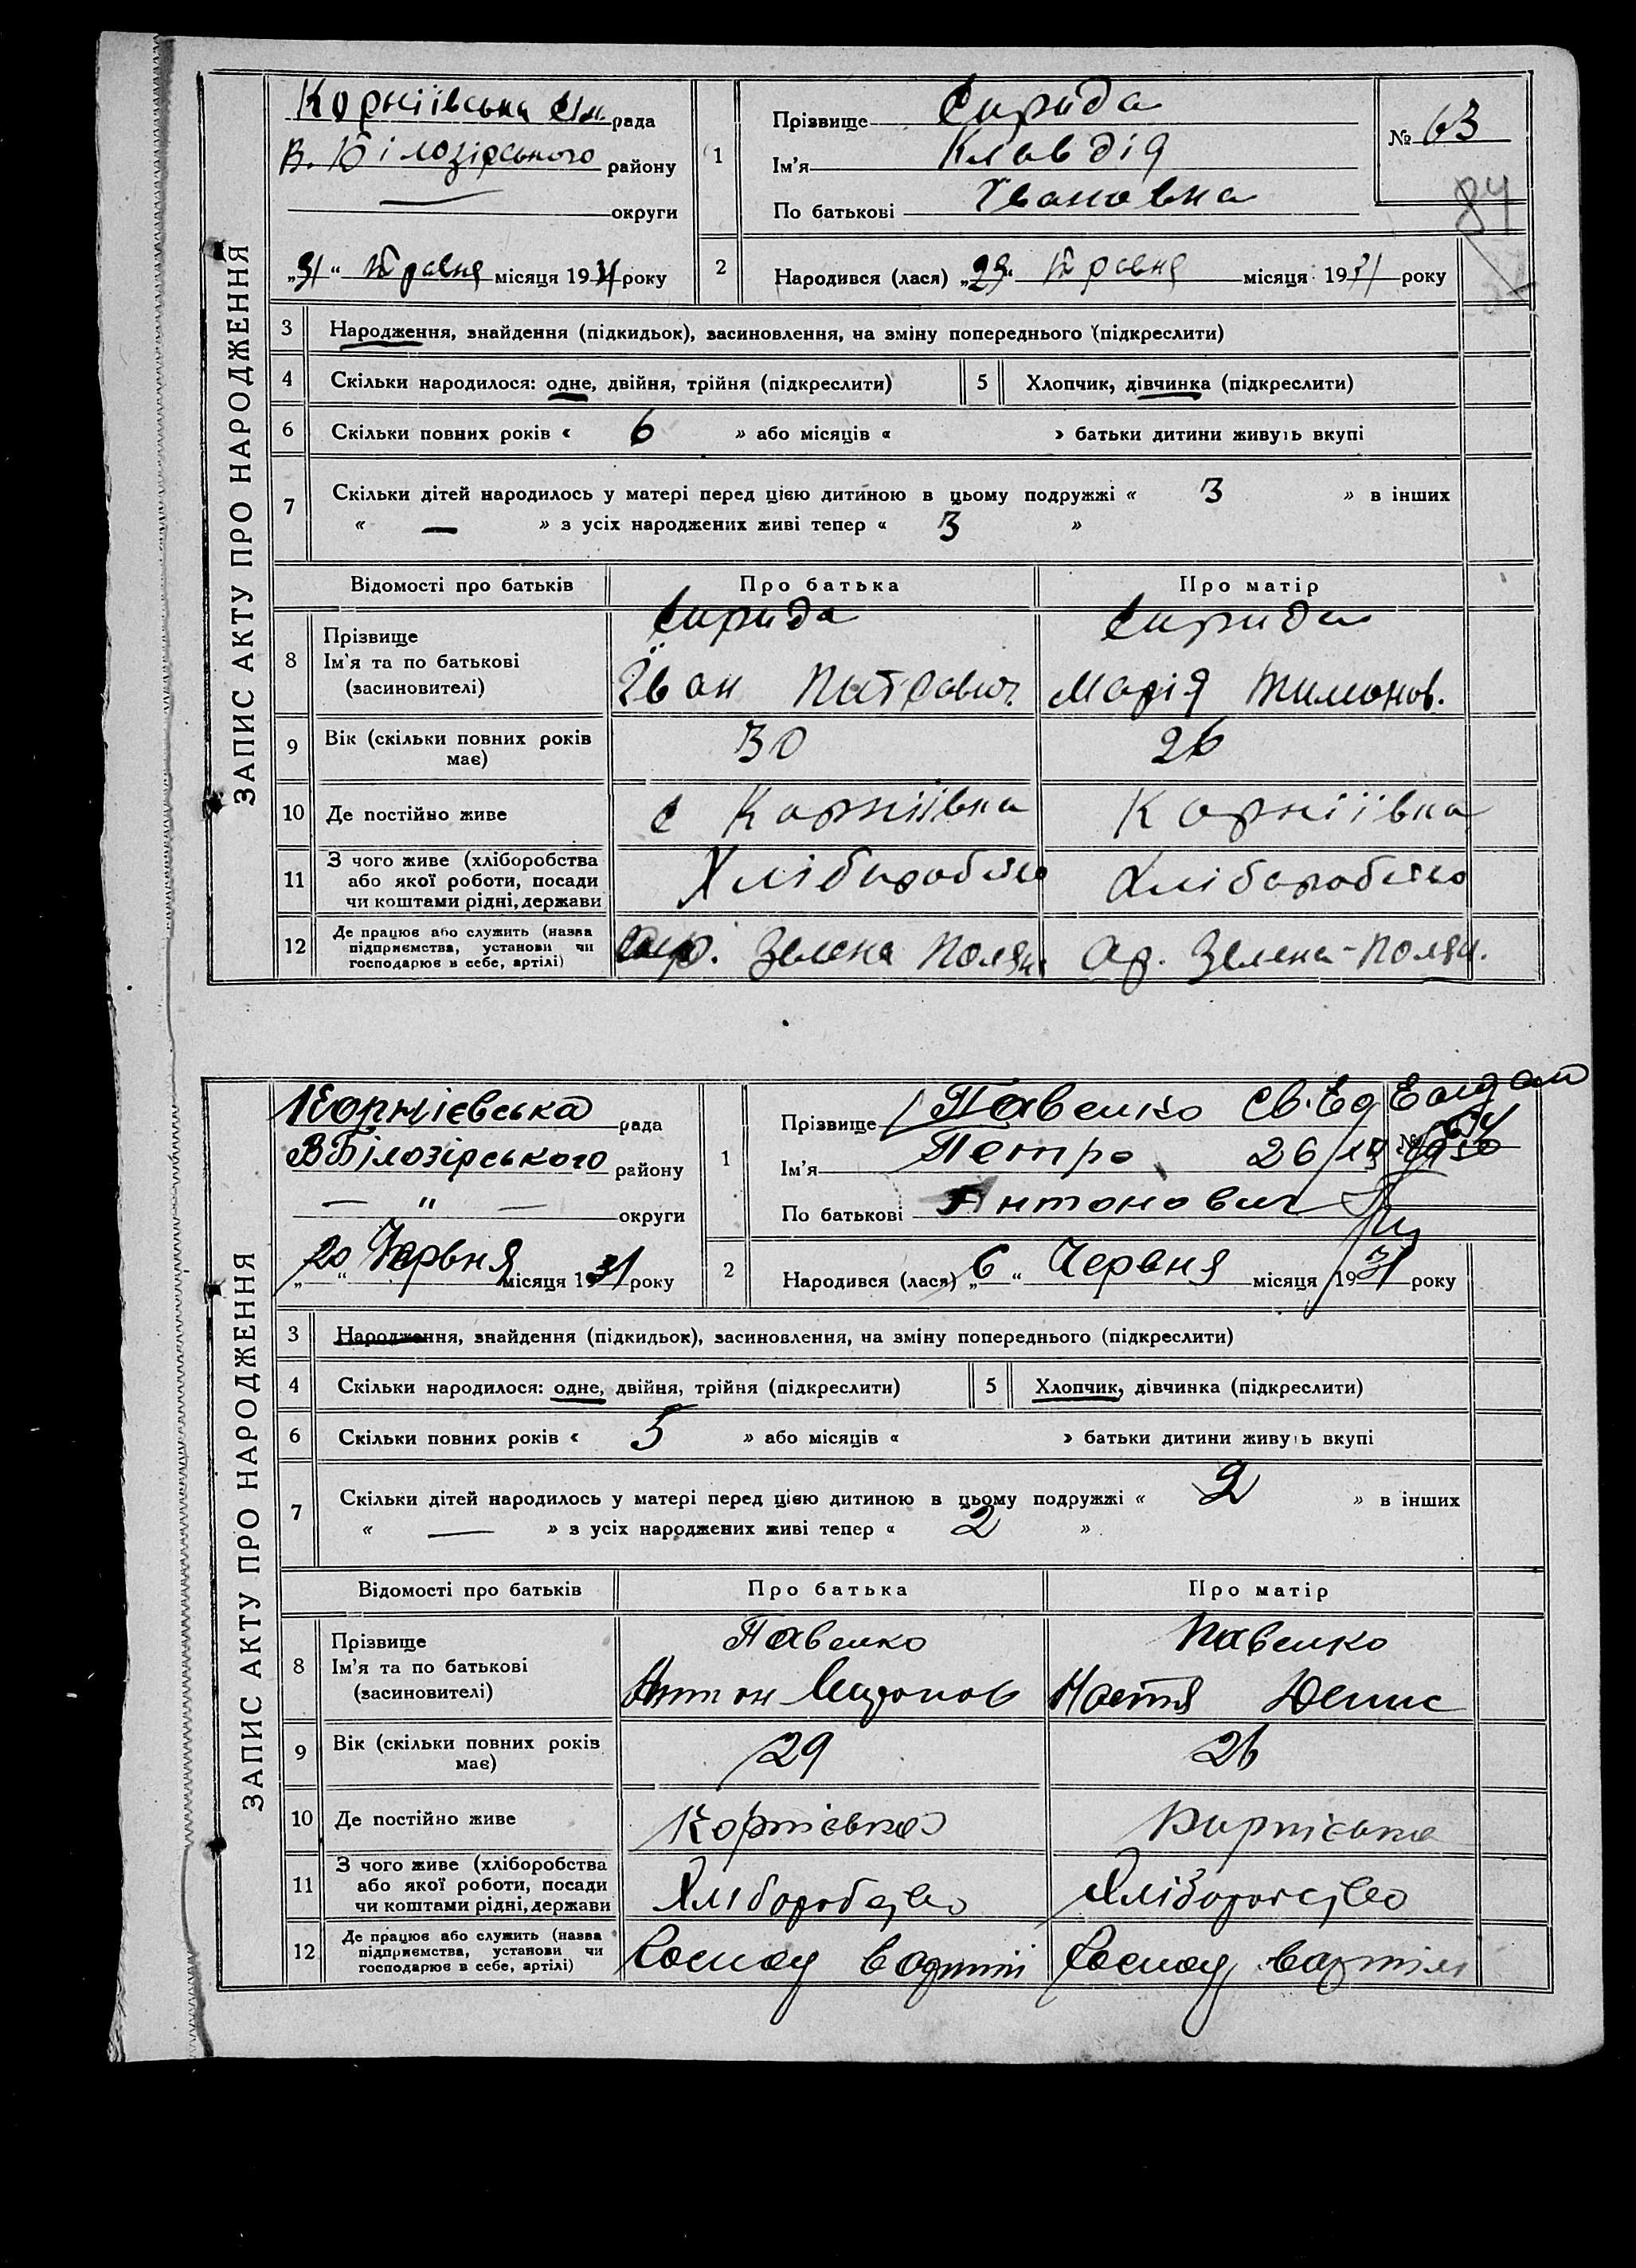 ЗАПИС АКТУ ПРО НАРОДЖЕННЯ
Корніївська рада
В. Білозірського району
— округи
„31“ Травня місяця 1931 року
1
Прізвище Скрида
Ім'я Клавдія
По батькові Івановна
№ 63
84
2
Народився (лася) „29“ Травня місяця 1931 року
3 Народження, знайдення (підкидьок), засиновлення, на зміну попереднього (підкреслити)
4 Скільки народилося: одне, двійня, трійня (підкреслити)
5 Хлопчик, дівчинка (підкреслити)
6 Скільки повних років « 6 » або місяців « » батьки дитини живуть вкупі
7 Скільки дітей народилось у матері перед цією дитиною в цьому подружжі « 3 » в інших
« — » з усіх народжених живі тепер « 3 »
Відомості про батьків Про батька Про матір
8 Прізвище
Ім'я та по батькові
(засиновителі)
Скрида
Іван Питрович
Скрида
Марія Тимонов.
9 Вік (скільки повних років має) 30 26
10 Де постійно живе с Корніївка Корніївка
11 З чого живе (хліборобства
або якої роботи, посади
чи коштами рідні, держави
Хліборобство Хліборобство
12 Де працює або служить (назва
підприємства, установи чи
господарює в себе, артілі)
Зелена Поляна Ар. Зелена-Полян.
ЗАПИС АКТУ ПРО НАРОДЖЕННЯ
Корнієвська рада
В Білозірського району
— „ — округи
„20“ Червня місяця 1931 року
1
Прізвище Павенко Св. Ед
Ім'я Петро 26/
По батькові Антонович
№ 64
2
Народився (лася) „6“ Червня місяця 1931 року
3 Народження, знайдення (підкидьок), засиновлення, на зміну попереднього (підкреслити)
4 Скільки народилося: одне, двійня, трійня (підкреслити)
5 Хлопчик, дівчинка (підкреслити)
6 Скільки повних років « 5 » або місяців « » батьки дитини живуть вкупі
7 Скільки дітей народилось у матері перед цією дитиною в цьому подружжі « 2 » в інших
« — » з усіх народжених живі тепер « 2 »
Відомості про батьків Про батька Про матір
8 Прізвище
Ім'я та по батькові
(засиновителі)
Павенко
Антон Миронов
Павенко
Настя Денис
9 Вік (скільки повних років має) 29 26
10 Де постійно живе Корнієвка Корнієвка
11 З чого живе (хліборобства
або якої роботи, посади
чи коштами рідні, держави
Хліборобство Хліборобство
12 Де працює або служить (назва
підприємства, установи чи
господарює в себе, артілі)
Господ в артілі Господ в артілі